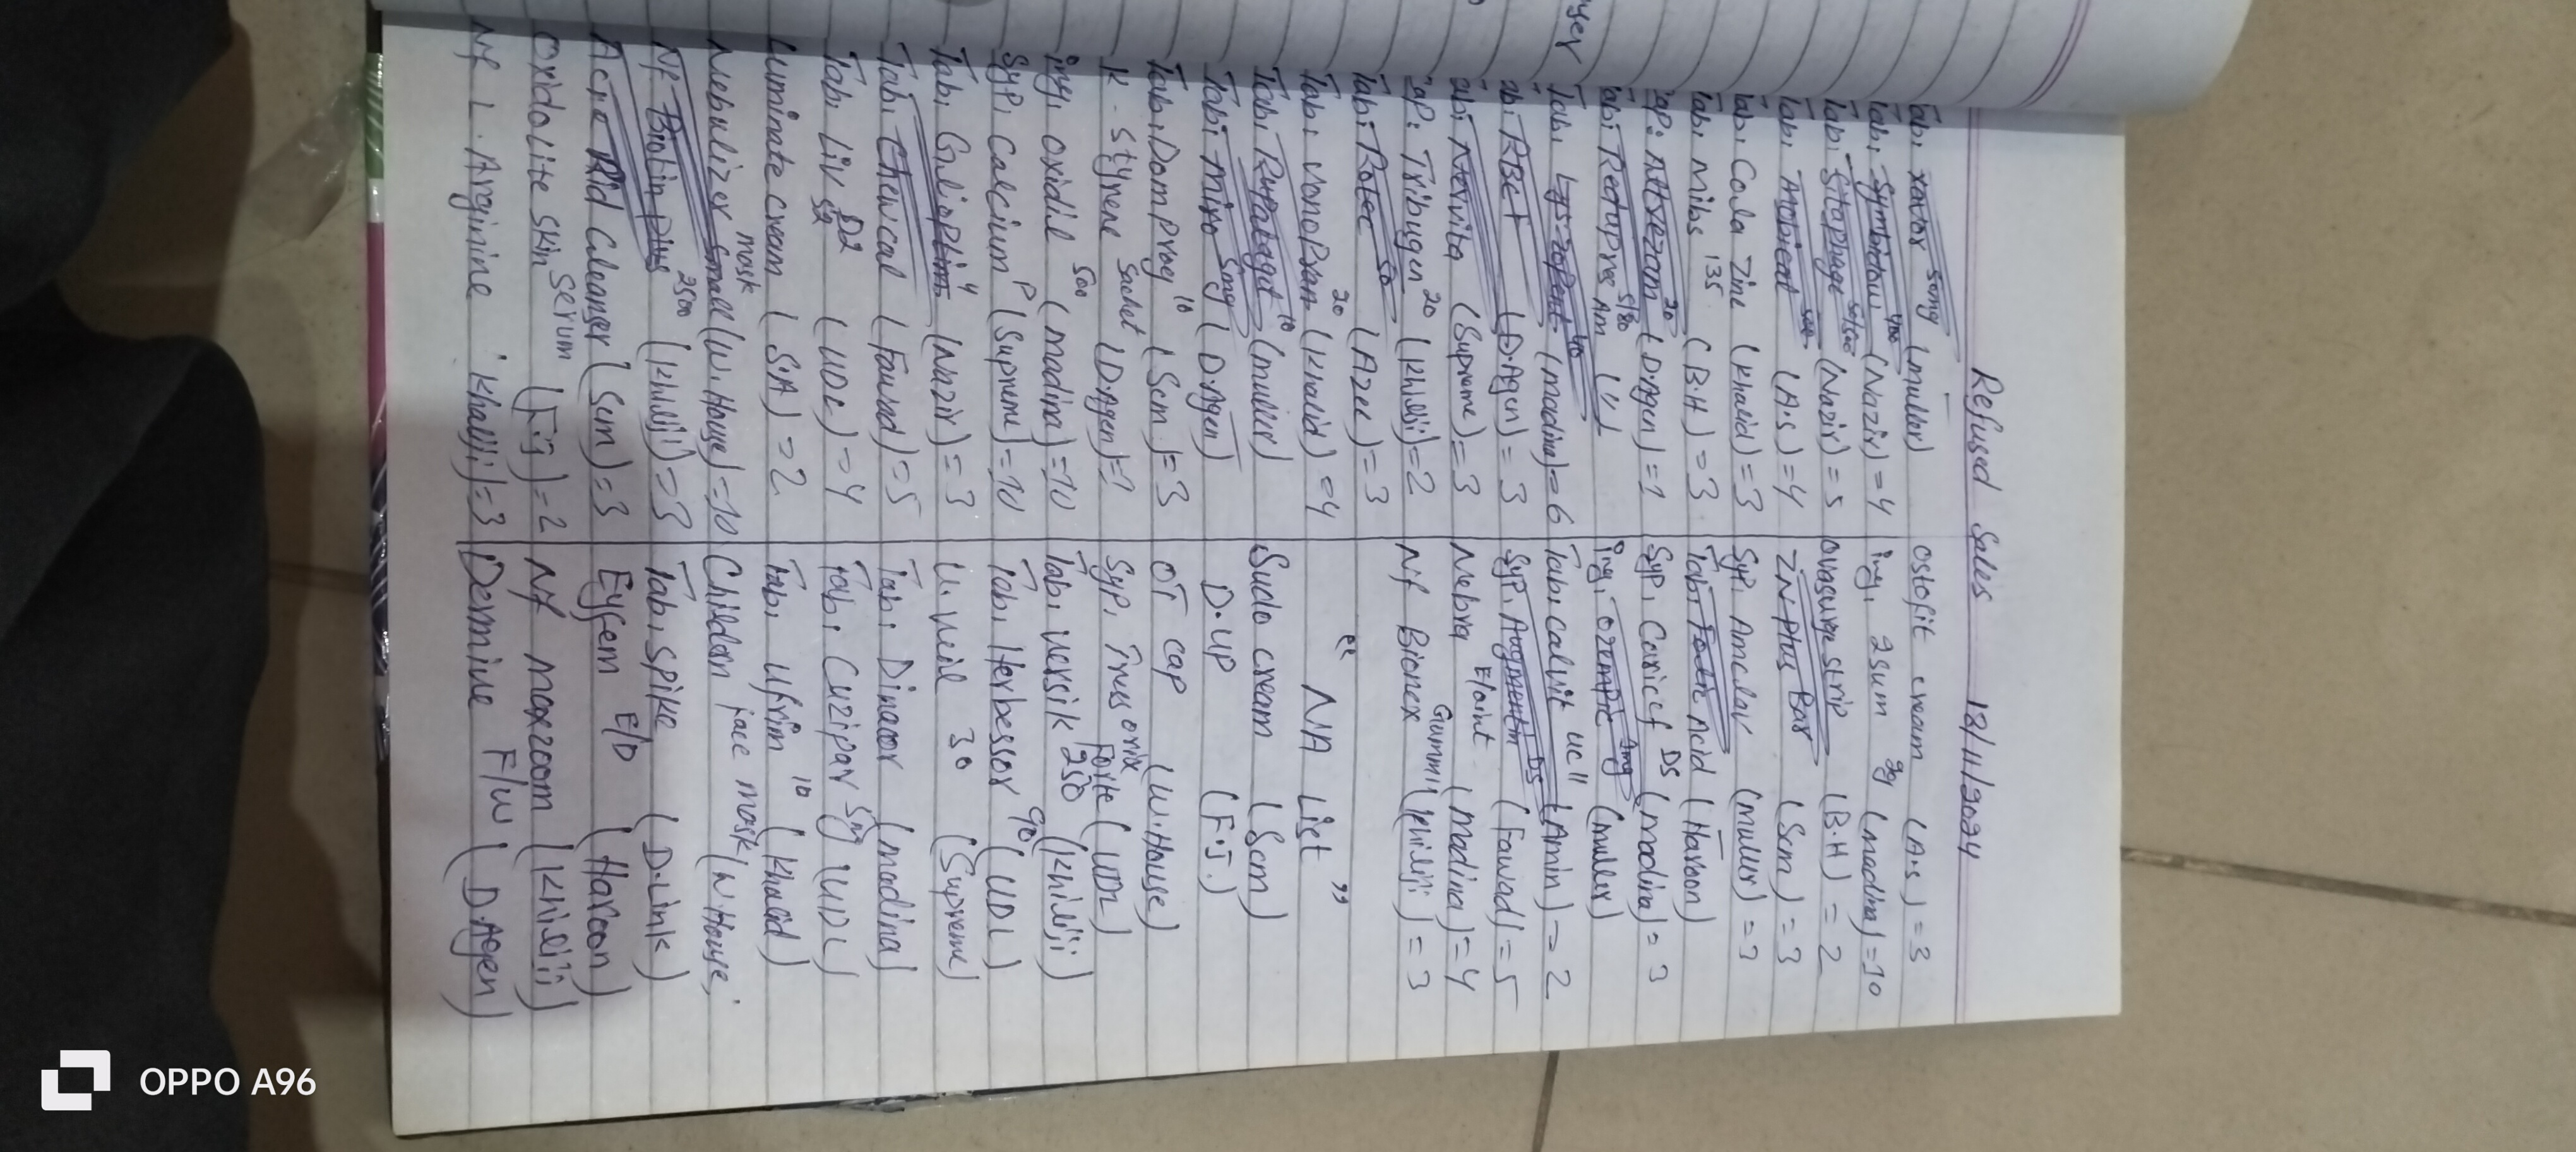 Refused Sales 12/11/2024
Tab. Xavor 50mg (muller)
Tab. Symbictow 400 (Nazir) = 4
Tab. Sitaphage 50/500 (Nazir) = 5
Tab. (A.S) = 4
Tab. Cola Zine (Khalid) = 3
Tab. Mibs 135 (B.H) = 3
Cap: Attrezam 20 (D.Agen) = 1
Tab: Redupres Am 5/80 (")
Tab. 40 (madina) = 6
Tab: RBet (D.Agen) = 3
Tab: Nervita (Supreme) = 3
Cap: Tribugen 20 (Khilji) = 2
Tab: Rotec 50 (Azee) = 3
Tab. VonoPzan 20 (Khalid) = 4
Tab. Rupatagut 10 (muller)
Tab: Mixo 5mg (D.Agen)
Tab. Domproey 10 (Scm) = 3
K-Styrene Sachet (D.Agen) = 1
inj. Oxidil 500 (madina) = 10
SyP. Calcium P (Supreme) = 10
Tab. 4 (Nazir) = 3
Tab. Chewcal (Fawad) = 5
Tab. Liv 52 D2 (UDL) = 4
Luminate cream (S.A) = 2
Nebulizer mask small (W.House) = 10
Nf Biotin Plus 2500 (Khilji) = 3
Acne Rid Cleanser (Scm) = 3
Oxidolite Skin Serum (F.J) = 2
Nf L. Arginine (Khilji) = 3
Ostofit cream (A.S) = 3
inj. 2sum 2g (madina) = 10
Ovasure strip (B.H) = 2
ZN Plus Bar (Scm) = 3
SyP. Amclav (muller) = 3
Tab. Folic Acid (Haroon)
SyP. Caricef DS (madina) = 3
inj. Ozempic 2mg (muller)
Tab. Calvit "UC" (Amin) = 2
SyP. Augmentin DS (Fawad) = 5
Nebra E/oint (madina) = 4
Nf Bionex Gummi (Khilji) = 3
" NA List "
Sudo cream (Scm)
D.UP (F.J.)
OT cap (W.House)
SyP. Trusonix Forte (UDL)
Tab. Versik 250 (Khilji)
Tab. Herbessor 90 (UDL)
30 (Supreme)
Tab. Dinacor (madina)
Tab. Cuzipar 5mg (UDL)
Tab. Ufrim 10 (Khalid)
Children face mask (W.House)
Tab. Spike (D.Link)
Eygem E/D (Haroon)
Nf maxzoom (Khilji)
Dermine F/W (D.Agen)
OPPO A96